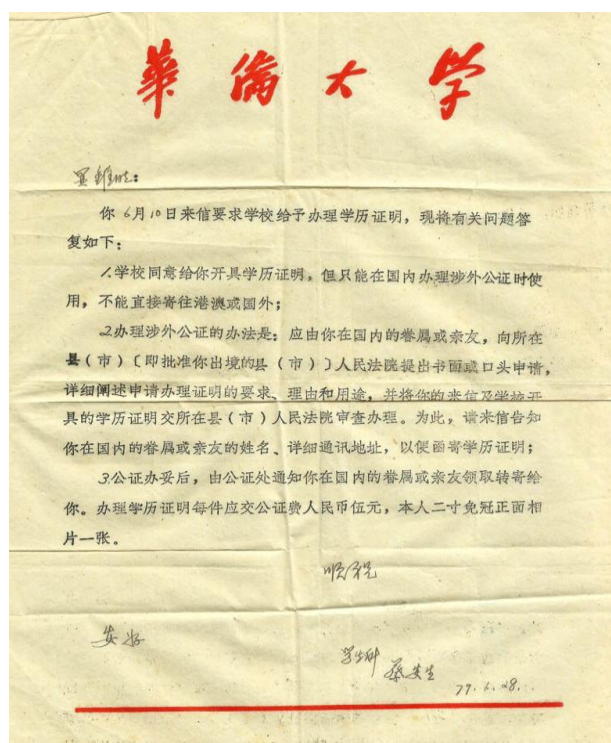 華僑大学
你6月10日来信要求学校给予办理学历证明，现将有关问题答
复如下：
1.学校同意给你开具学历证明，但只能在国内办理涉外公证时使
用，不能直接寄往港澳或国外；
2.办理涉外公证的办法是：应由你在国内的眷属或亲友，向所在
县（市）〔即批准你出境的县（市）〕人民法院提出书面或口头申请，
详细阐述申请办理证明的要求、理由和用途，并将你的来信及学校开
具的学历证明交所在县（市）人民法院审查办理。为此，请来信告知
你在国内的眷属或亲友的姓名、详细通讯地址，以便函寄学历证明；
3.公证办妥后，由公证处通知你在国内的眷属或亲友领取转寄给
你。办理学历证明每件应交公证费人民币伍元，本人二寸免冠正面相
片一张。
顺祝
安好
学生科
79.6.28.